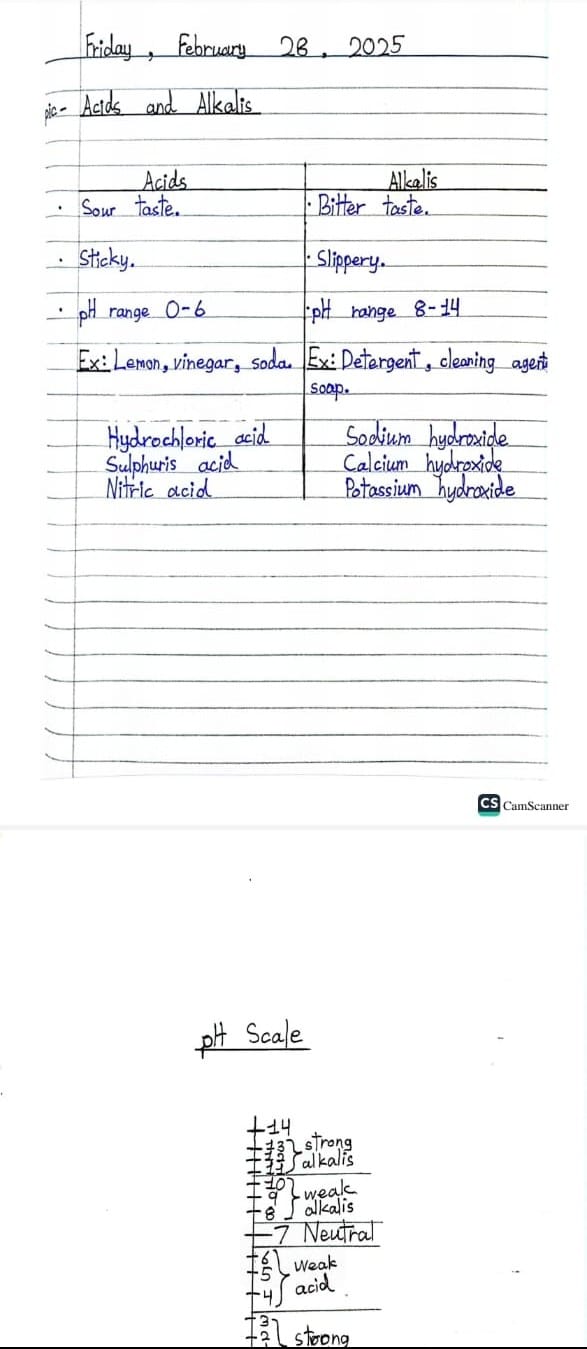 Friday, February 28, 2025
pic- Acids and Alkalis
Acids Alkalis
· Sour taste. · Bitter taste.
· Sticky. · Slippery.
· pH range 0-6 · pH range 8-14
Ex: Lemon, vinegar, soda. Ex: Detergent, cleaning agent
soap.
Hydrochloric acid Sodium hydroxide
Sulphuris acid Calcium hydroxide
Nitric acid Potassium hydroxide
CS CamScanner
pH Scale
14
13 strong
12 alkalis
11
10
9 weak
8 alkalis
7 Neutral
6
5 weak
4 acid
3
2 strong